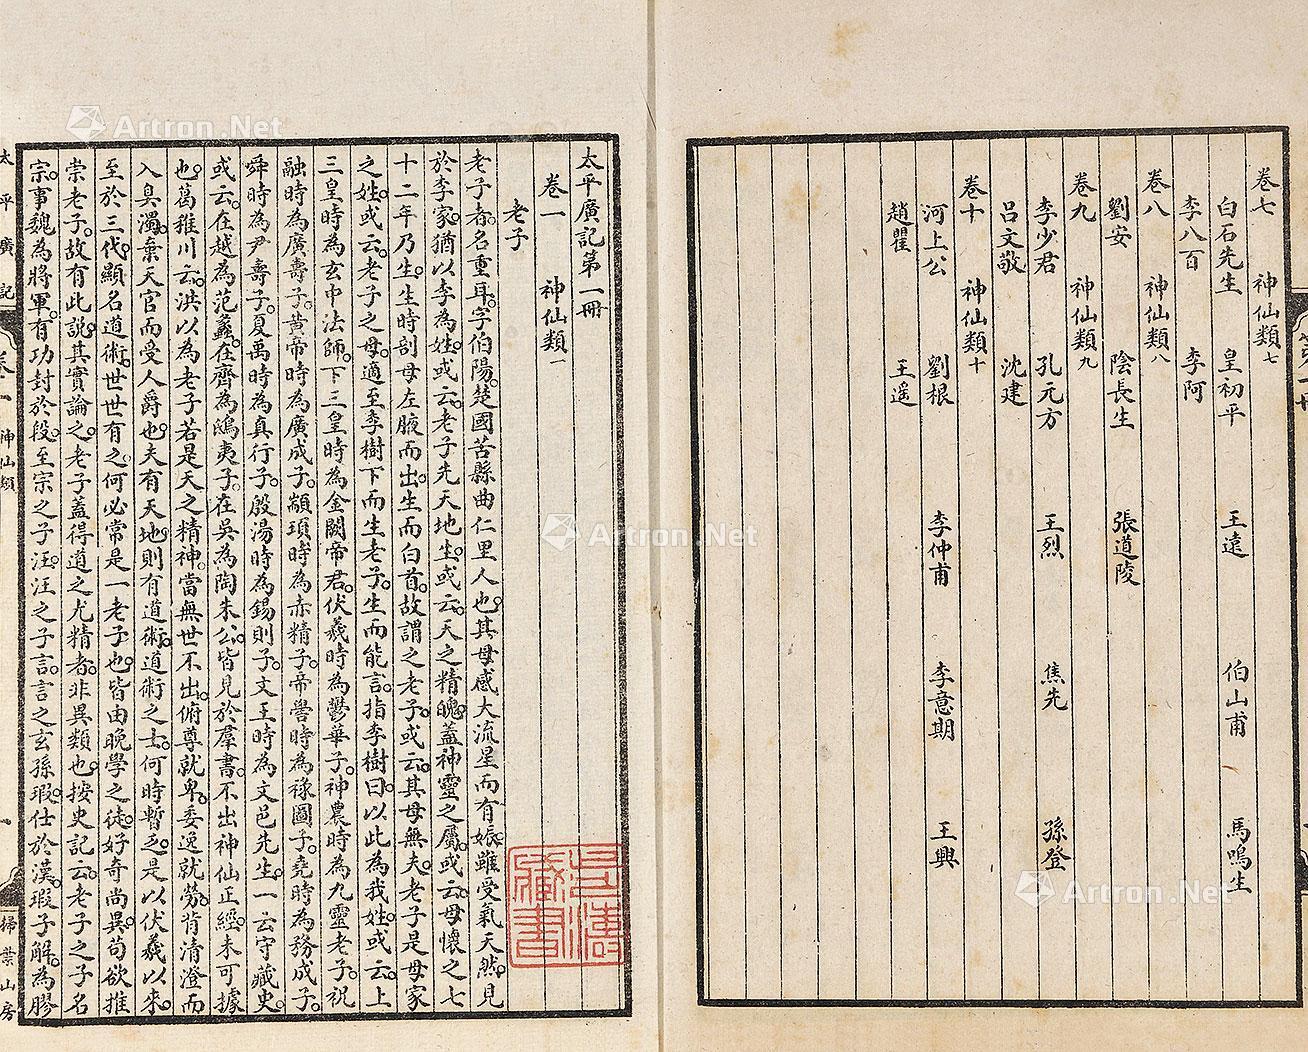 卷七 神仙類七
白石先生 皇初平 王遠 伯山甫 馬鳴生
李八百 李阿
卷八 神仙類八
劉安 陰長生 張道陵
卷九 神仙類九
李少君 孔元方 王烈 焦先 孫登
呂文敬 沈建
卷十 神仙類十
河上公 劉根 李仲甫 李意期 王興
趙瞿 王遥
太平廣記第一冊
卷一 神仙類一
老子
老子者。名重耳。字伯陽。楚國苦縣曲仁里人也。其母感大流星而有娠。雖受氣天然。見
於李家。猶以李為姓。或云。老子先天地生。或云。天之精魄。蓋神靈之屬。或云。母懷之七
十二年乃生。生時剖母左腋而出。生而白首。故謂之老子。或云。其母無夫。老子是母家
之姓。或云。老子之母。適至李樹下而生老子。生而能言。指李樹曰。以此為我姓。或云。上
三皇時為玄中法師。下三皇時為金闕帝君。伏羲時為鬱華子。神農時為九靈老子。祝
融時為廣壽子。黃帝時為廣成子。顓頊時為赤精子。帝嚳時為祿圖子。堯時為務成子。
舜時為尹壽子。夏禹時為真行子。殷湯時為錫則子。文王時為文邑先生。一云守藏史。
或云。在越為范蠡。在齊為鴟夷子。在吳為陶朱公。皆見於羣書。不出神仙正經。未可據
也。葛稚川云。洪以為老子若是天之精神。當無世不出。俯尊就卑。委逸就勞。背清澄而
入臭濁。棄天官而受人爵也。夫有天地。則有道術。道術之士。何時暫乏。是以伏羲以來。
至於三代。顯名道術。世世有之。何必常是一老子也。皆由晚學之徒。好奇尚異。苟欲推
崇老子。故有此說。其實論之。老子蓋得道之尤精者。非異類也。按史記云。老子之子名
宗。事魏為將軍。有功封於段。至宗之子汪。汪之子言。言之玄孫瑕。仕於漢。瑕子解。為膠
太平廣記
卷一 神仙類
一
掃葉山房
藏書
Artron.Net
Artron.Net
Artron.Net